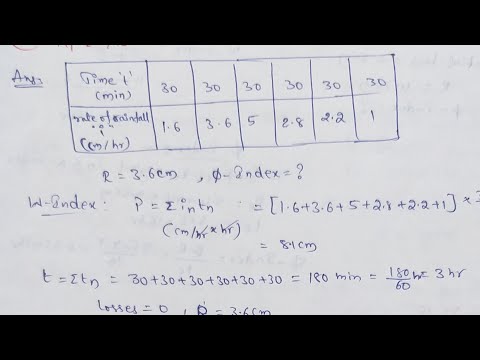 Ans:
Time 't' (min) 30 30 30 30 30 30
rate of rainfall 'i' (cm/hr) 1.6 3.6 5 2.8 2.2 1
R = 3.6cm , φ-Index = ?
W-Index : P = Σ in tn = [1.6+3.6+5+2.8+2.2+1] ×
(cm/hr × hr)
= 8.1cm
t = Σtn = 30+30+30+30+30+30 = 180 min = 180/60 hr = 3 hr
losses = 0 , R = 3.6cm